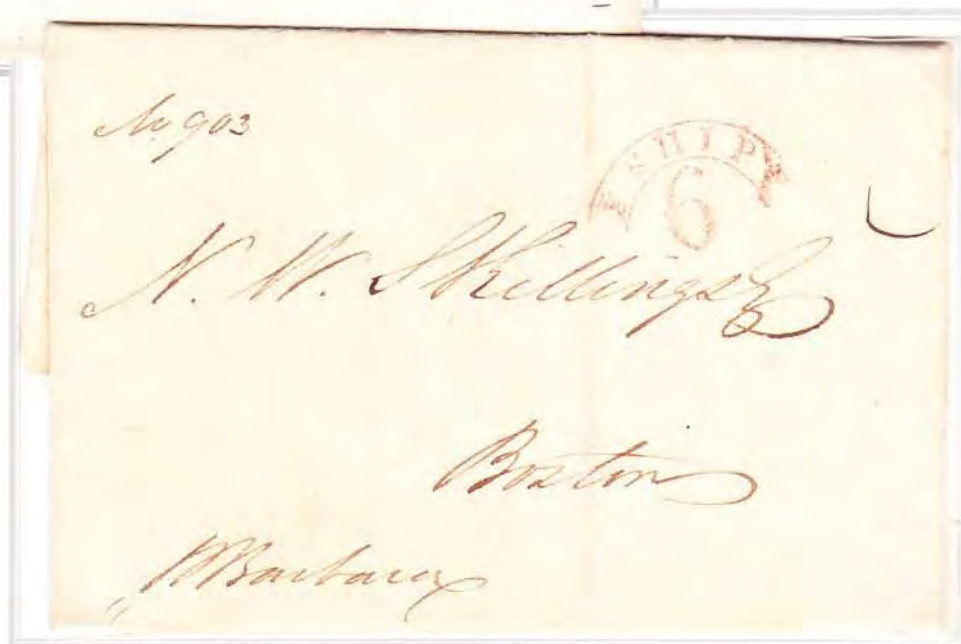 No 903
SHIP
6
N. W. Skillings Esq
Boston
p Barbara